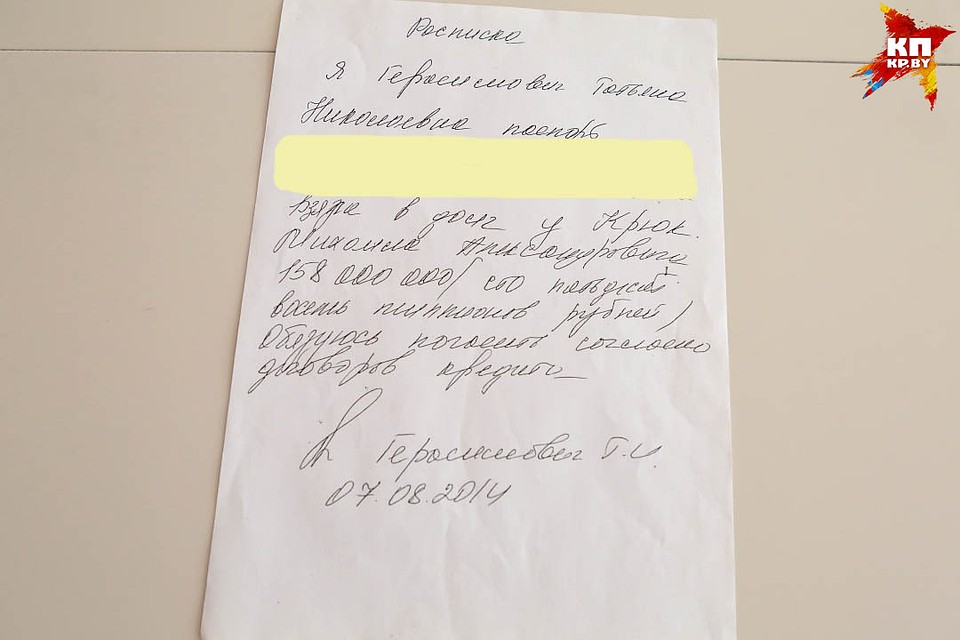 Расписка
Я Герасимович Татьяна
Николаевна паспорт
Взяла в долг у Крюк
Михаила Александровича
158 000 000 / сто пятьдесят
восемь миллионов рублей /
Обязуюсь погасить согласно
договоров кредита
Герасимович Т.Н.
07.08.2014
КП
KP.BY